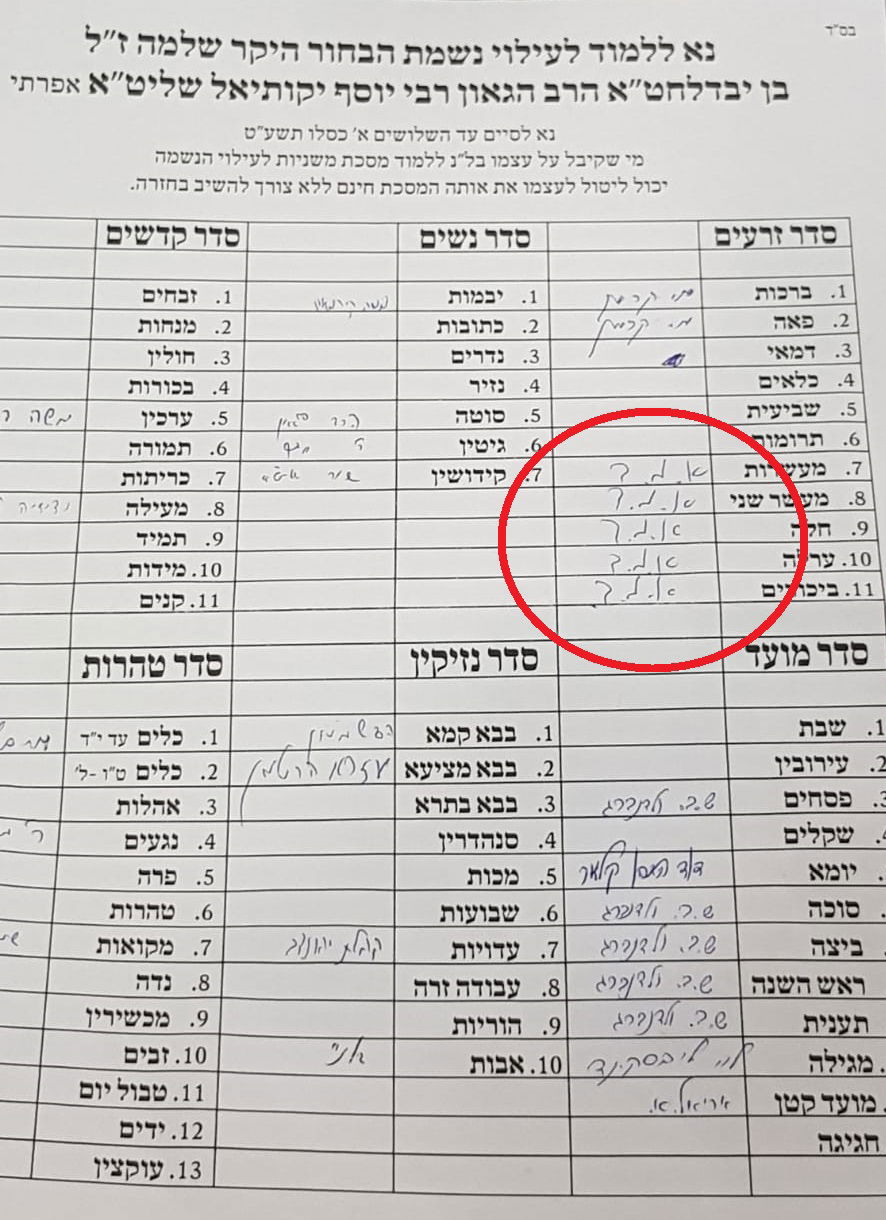 בס"ד
נא ללמוד לעילוי נשמת הבחור היקר שלמה ז"ל
בן יבדלחט"א הרב הגאון רבי יוסף יקותיאל שליט"א אפרתי
נא לסיים עד השלושים א' כסלו תשע"ט
מי שקיבל על עצמו בל"נ ללמוד מסכת משניות לעילוי הנשמה
יכול ליטול לעצמו את אותה המסכת חינם ללא צורך להשיב בחזרה.
סדר זרעים סדר נשים סדר קדשים
1. ברכות 1. יבמות 1. זבחים
2. פאה 2. כתובות 2. מנחות
3. דמאי 3. נדרים 3. חולין
4. כלאים 4. נזיר 4. בכורות
5. שביעית 5. סוטה 5. ערכין משה
6. תרומות 6. גיטין 6. תמורה
7. מעשרות א.מ.ד 7. קידושין 7. כריתות
8. מעשר שני א.מ.ד 8. מעילה
9. חלה א.מ.ד 9. תמיד
10. ערלה א.מ.ד 10. מידות
11. ביכורים א.מ.ד 11. קנים
סדר מועד סדר נזיקין סדר טהרות
1. שבת 1. בבא קמא 1. כלים עד י"ד
2. עירובין 2. בבא מציעא עזרא 2. כלים ט"ו -ל'
3. פסחים ש.ב. ולדנברג 3. בבא בתרא 3. אהלות
4. שקלים 4. סנהדרין 4. נגעים
יומא דוד 5. מכות 5. פרה
סוכה ש.ב. ולדנברג 6. שבועות 6. טהרות
ביצה ש.ב. ולדנברג 7. עדויות קהלת 7. מקואות
ראש השנה ש.ב. ולדנברג 8. עבודה זרה 8. נדה
תענית ש.ב. ולדנברג 9. הוריות 9. מכשירין
מגילה לוי ליבסקינד 10. אבות אני 10. זבים
מועד קטן אריאל א. 11. טבול יום
חגיגה 12. ידים
13. עוקצין